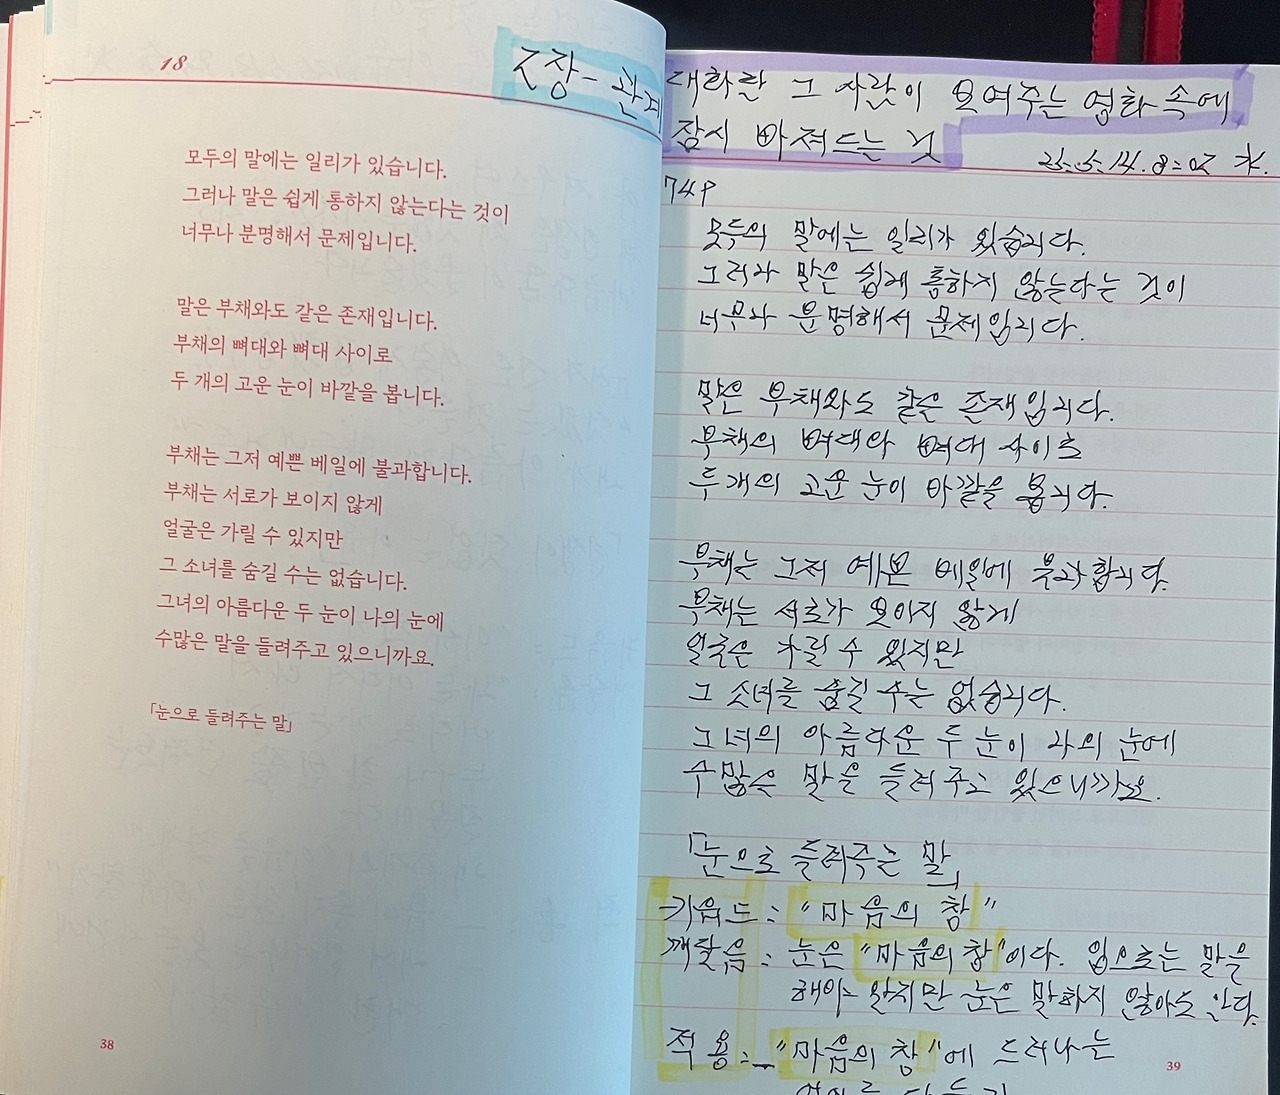 18
2장 - 관계
모두의 말에는 일리가 있습니다.
그러나 말은 쉽게 통하지 않는다는 것이
너무나 분명해서 문제입니다.
말은 부채와도 같은 존재입니다.
부채의 뼈대와 뼈대 사이로
두 개의 고운 눈이 바깥을 봅니다.
부채는 그저 예쁜 베일에 불과합니다.
부채는 서로가 보이지 않게
얼굴은 가릴 수 있지만
그 소녀를 숨길 수는 없습니다.
그녀의 아름다운 두 눈이 나의 눈에
수많은 말을 들려주고 있으니까요.
「눈으로 들려주는 말」
38
대화란 그 사람이 보여주는 영화 속에
잠시 빠져드는 것
25.5.14.8:02 水.
74P
모두의 말에는 일리가 있습니다.
그러나 말은 쉽게 통하지 않는다는 것이
너무나 분명해서 문제입니다.
말은 부채와도 같은 존재입니다.
부채의 뼈대와 뼈대 사이로
두 개의 고운 눈이 바깥을 봅니다.
부채는 그저 예쁜 베일에 불과합니다.
부채는 서로가 보이지 않게
얼굴은 가릴 수 있지만
그 소녀를 숨길 수는 없습니다.
그녀의 아름다운 두 눈이 나의 눈에
수많은 말을 들려주고 있으니까요.
「눈으로 들려주는 말」
키워드: "마음의 창"
깨달음: 눈은 "마음의 창"이다. 입으로는 말을
해야 알지만 눈은 말하지 않아도 안다.
적용: "마음의 창"에 드러나는
39